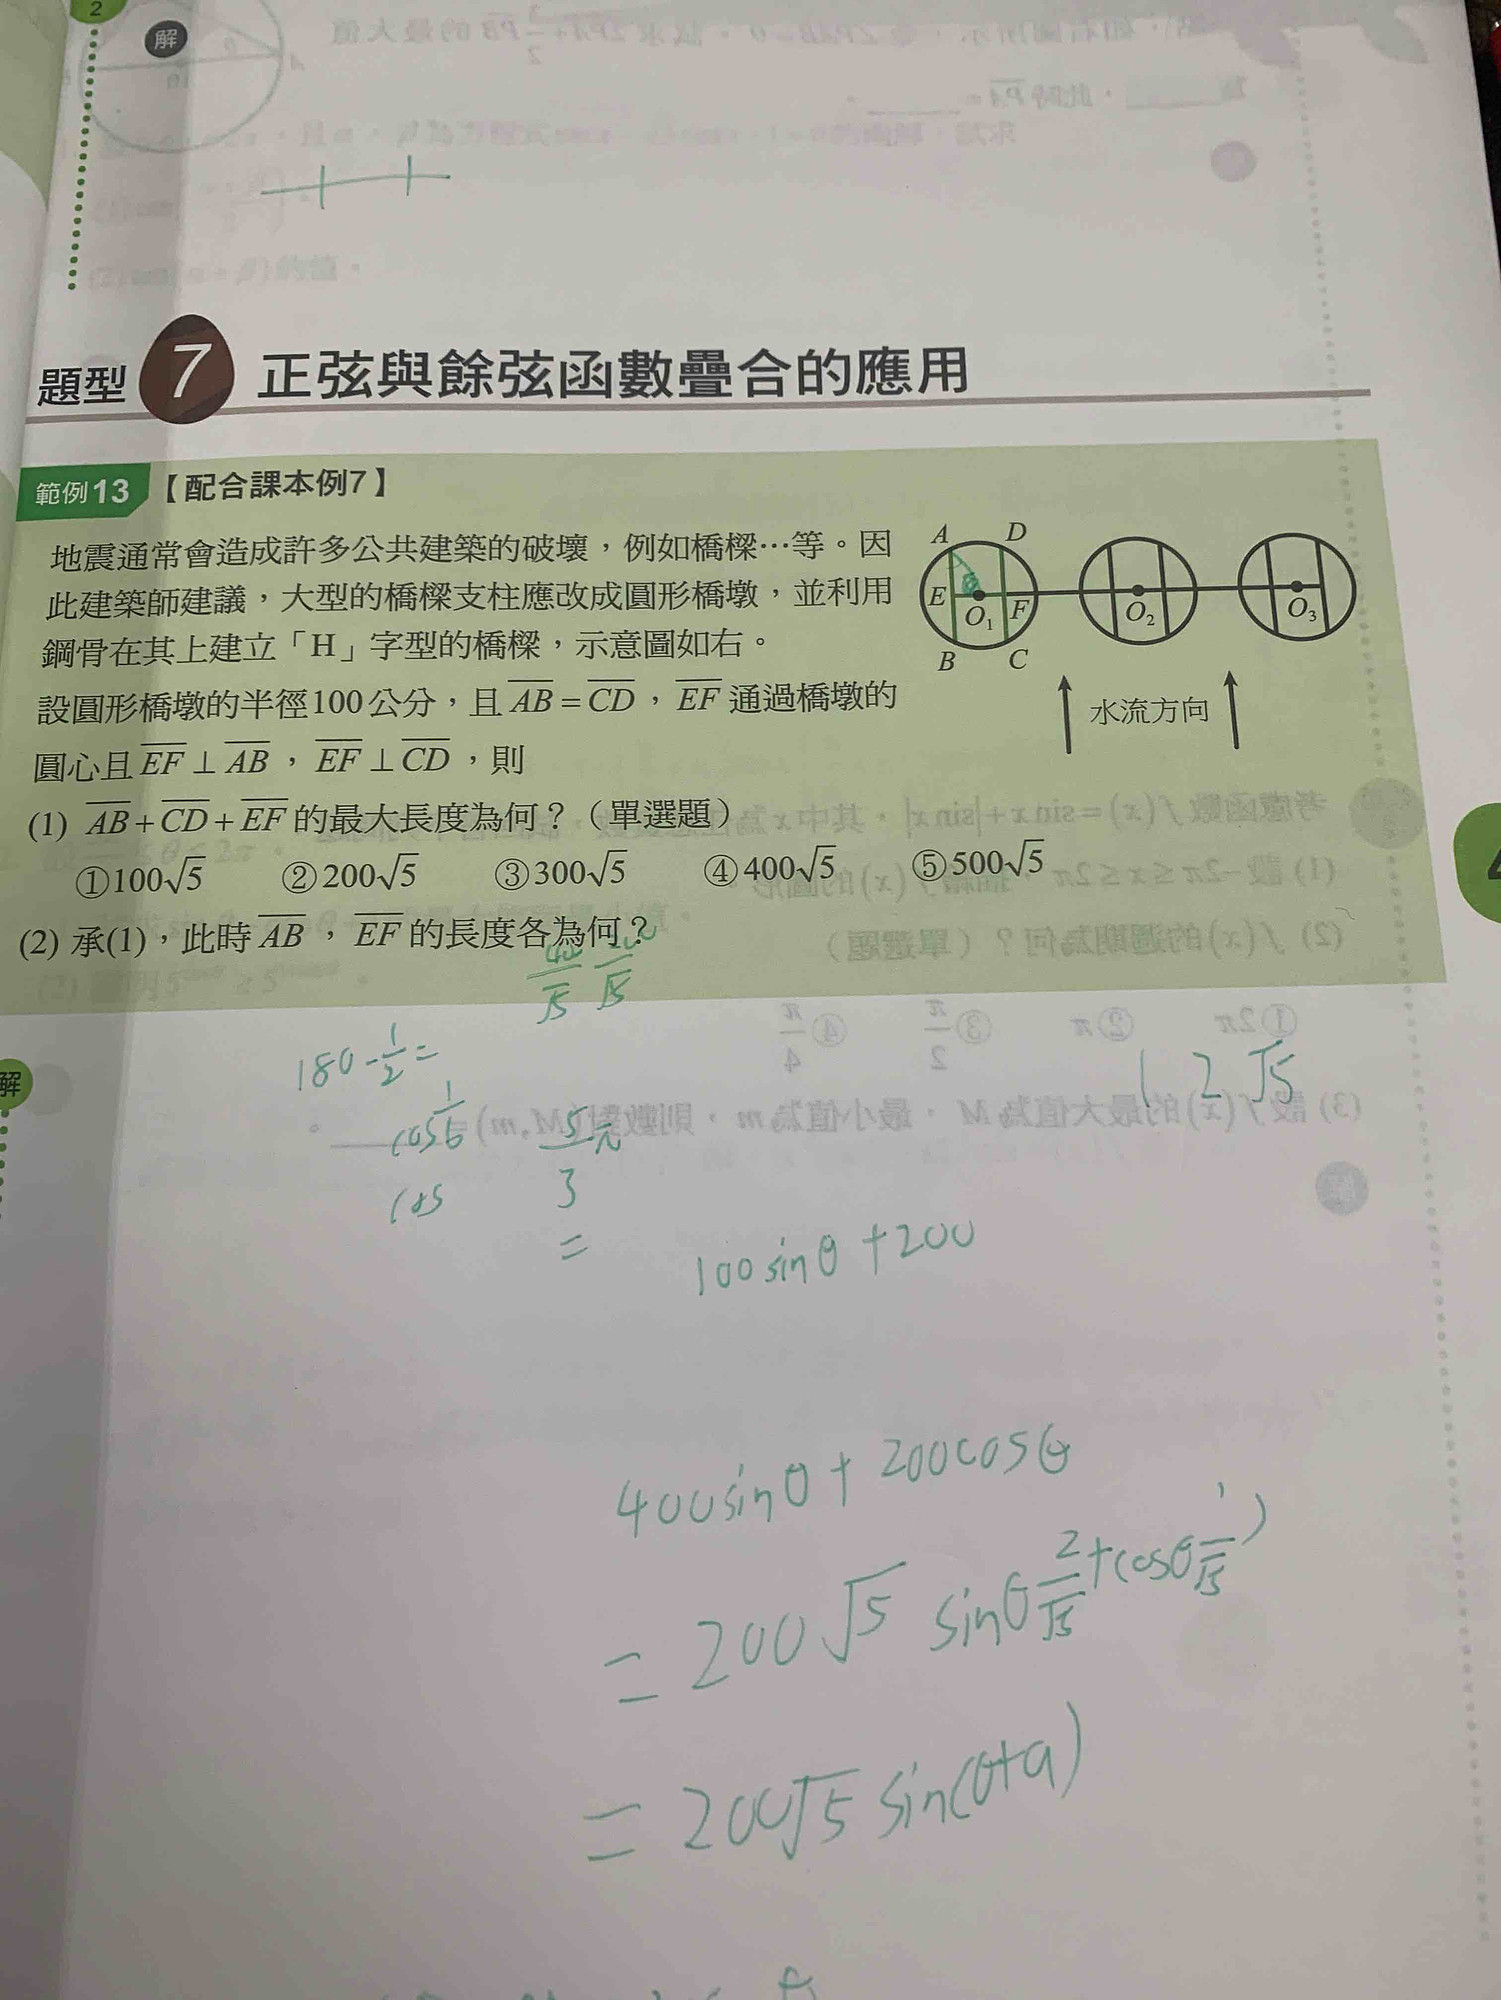 2
解
題型 7 正弦與餘弦函數疊合的應用
範例13 【配合課本例7】
地震通常會造成許多公共建築的破壞，例如橋樑…等。因
此建築師建議，大型的橋樑支柱應改成圓形橋墩，並利用
鋼骨在其上建立「H」字型的橋樑，示意圖如右。
設圓形橋墩的半徑100公分，且 AB = CD ， EF 通過橋墩的
圓心且 EF ⊥ AB ， EF ⊥ CD ，則
A D
E O₁ F O₂ O₃
B C
水流方向
(1) AB + CD + EF 的最大長度為何？（單選題）
①100√5 ②200√5 ③300√5 ④400√5 ⑤500√5
(2) 承(1)，此時 AB ， EF 的長度各為何？
解
180 - 1/2 =
1 2 √5
cos
5/3 π
=
100 sinθ + 200
400 sinθ + 200 cosθ
= 200√5 sinθ 2/√5 + cosθ 1/√5 )
= 200√5 sin(θ+a)